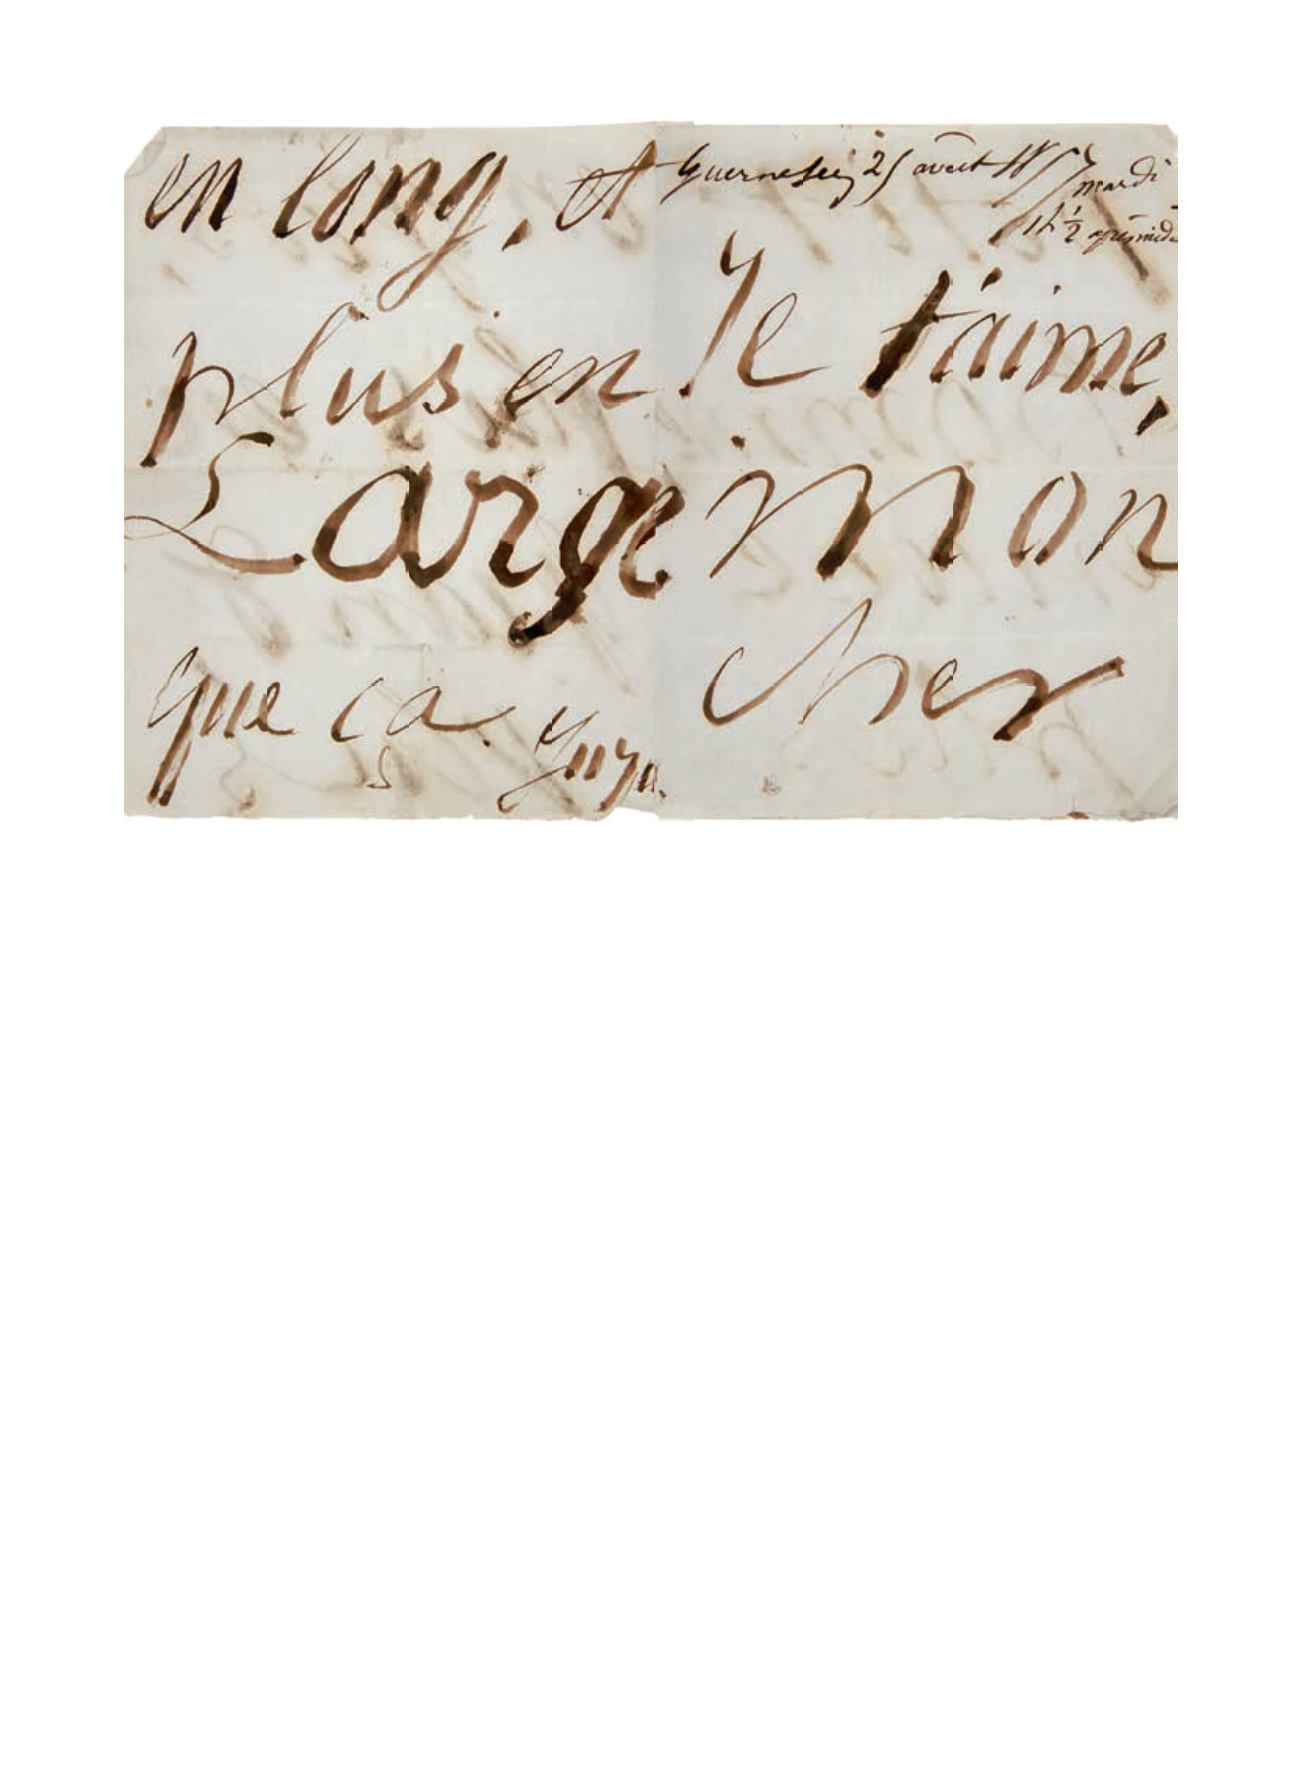 Guernesey 25 août 1857 mardi
1h ½ après midi
Je t'aime,
mon
cher
en long, et
plus en
Large
que ça.
Juju.